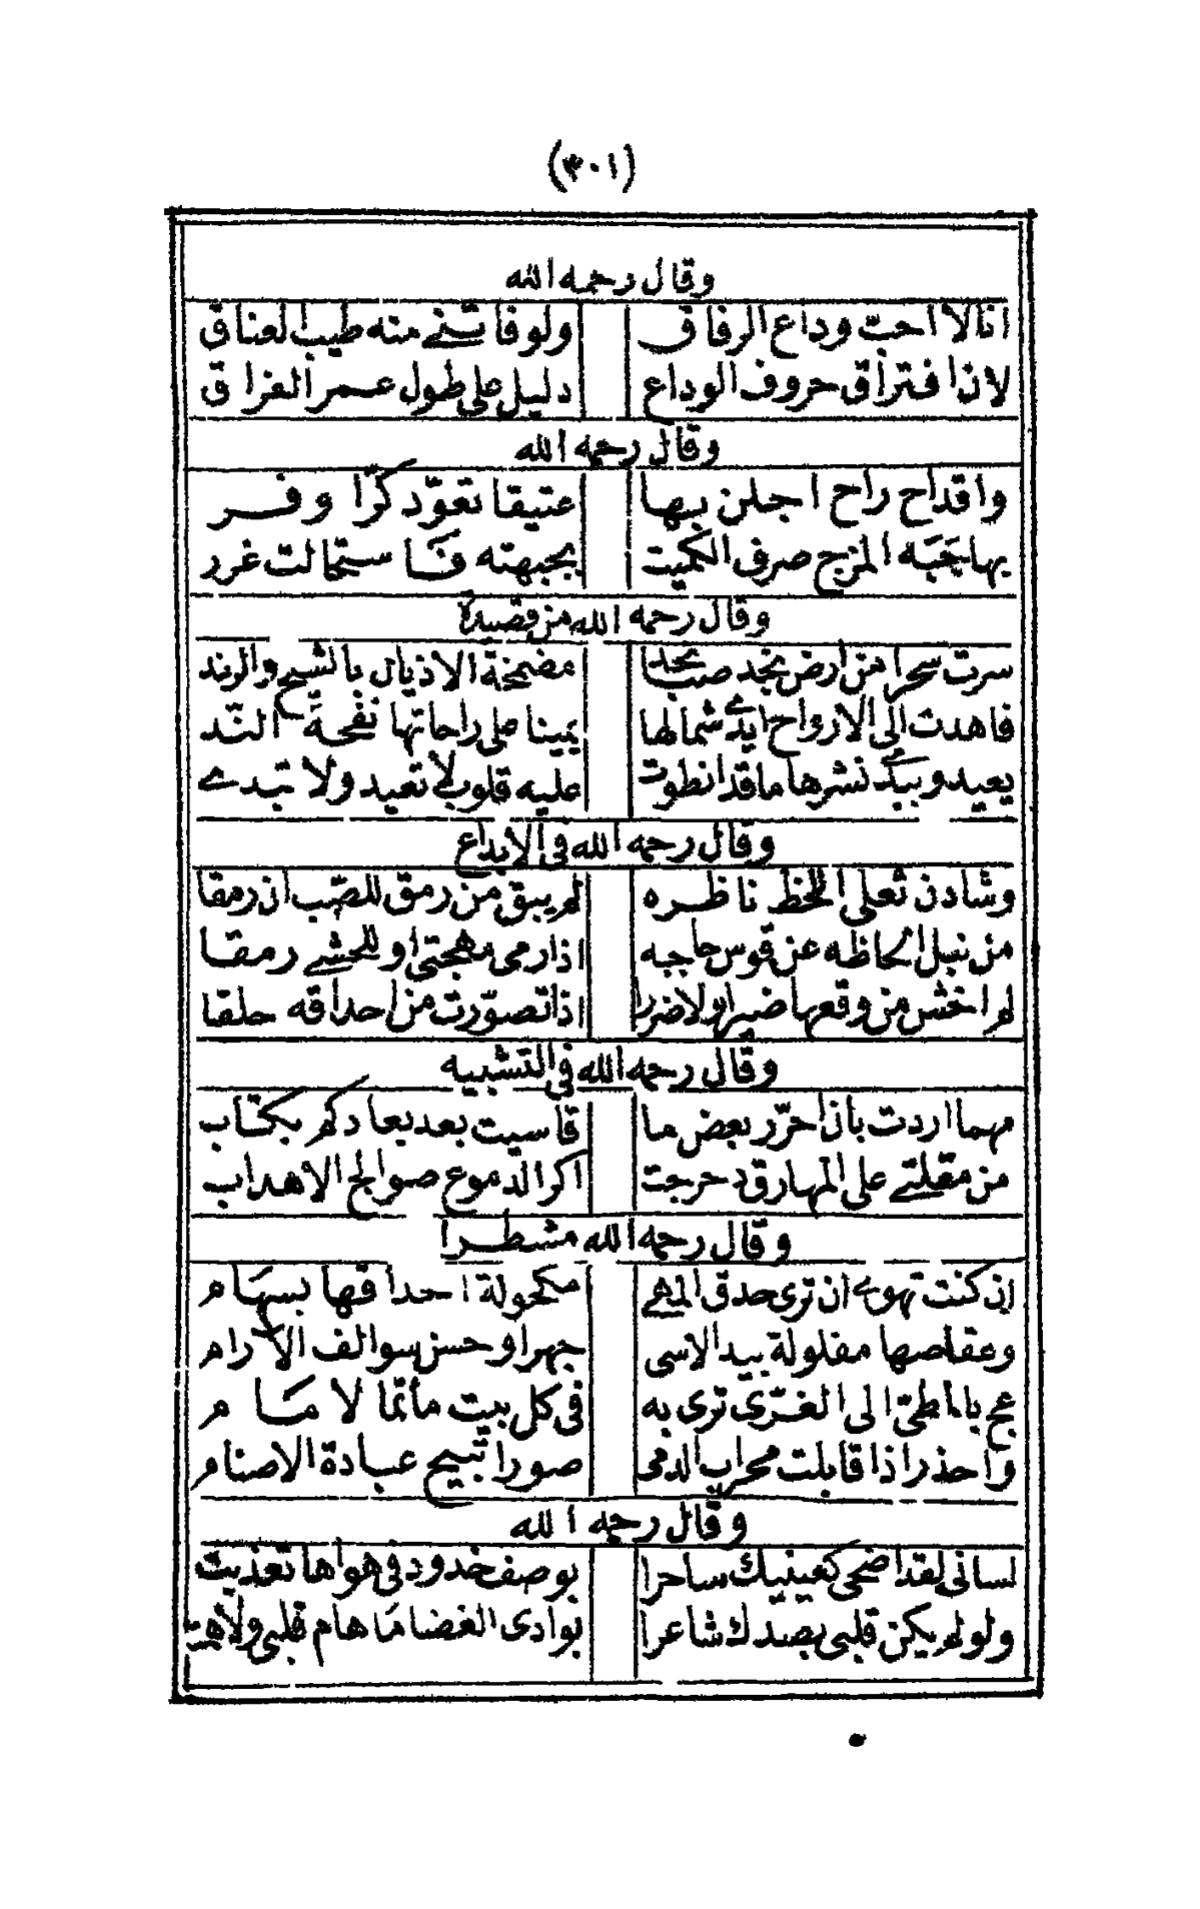 (٣٠١)
وقال رحمه الله
انا لا احب وداع الرفاق ولو فاتني منه طيب العناق
لان افتراق حروف الوداع دليل على طول عمر الفراق
وقال رحمه الله
واقداح راح اجلن بها عتيقا تعوّد كرّا وفر
بها جَبَه المزج صرف الكميت بجبهته فَاستمالت غرر
وقال رحمه الله من قصيدة
سرت سحرا من ارض نجد صبا نجد مضمخة الاذيال بالشيح والرند
فاهدت الى الارواح ايدي شمالها يمينا على راحاتها نفحة النّد
يعيد ويبدي نشرها ما قد انطوت عليه قلوب لا تعيد ولا تبدي
وقال رحمه الله في الابداع
وشادن ثعلي اللحظ ناظره لم يبق من رمق للصّب ان رمقا
من نبل الحاظه عن قوس حاجبه اذا رمى مهجتي او للحشى رمقا
لم اخش من وقعها ضيرا ولا ضررا اذا تصوّرت من احداقه حلقا
وقال رحمه الله في التشبيه
مهما اردت بان احرّر بعض ما قاسيت بعد بعادكم بكتاب
من مقلتي على المهارق دحرجت اكر الدموع صوالج الاهداب
وقال رحمه الله مشطرا
ان كنت تهوى ان ترى حدق المهى مكحولة احداقها بسهام
وعقاصها مفلولة بيد الاسى جهرا وحسن سوالف الآرام
عج بالمطيّ الى الغرّى ترى به في كل بيت مأتما لا مام
واحذر اذا قابلت محراب الدمى صورا تبيح عبادة الاصنام
وقال رحمه الله
لساني لقد اضحى كعينيك ساحرا بوصف خدود في هواها تعذبت
ولو لم يكن قلبي بصدك شاعرا بوادى الغضا مَا هام قلبي ولا